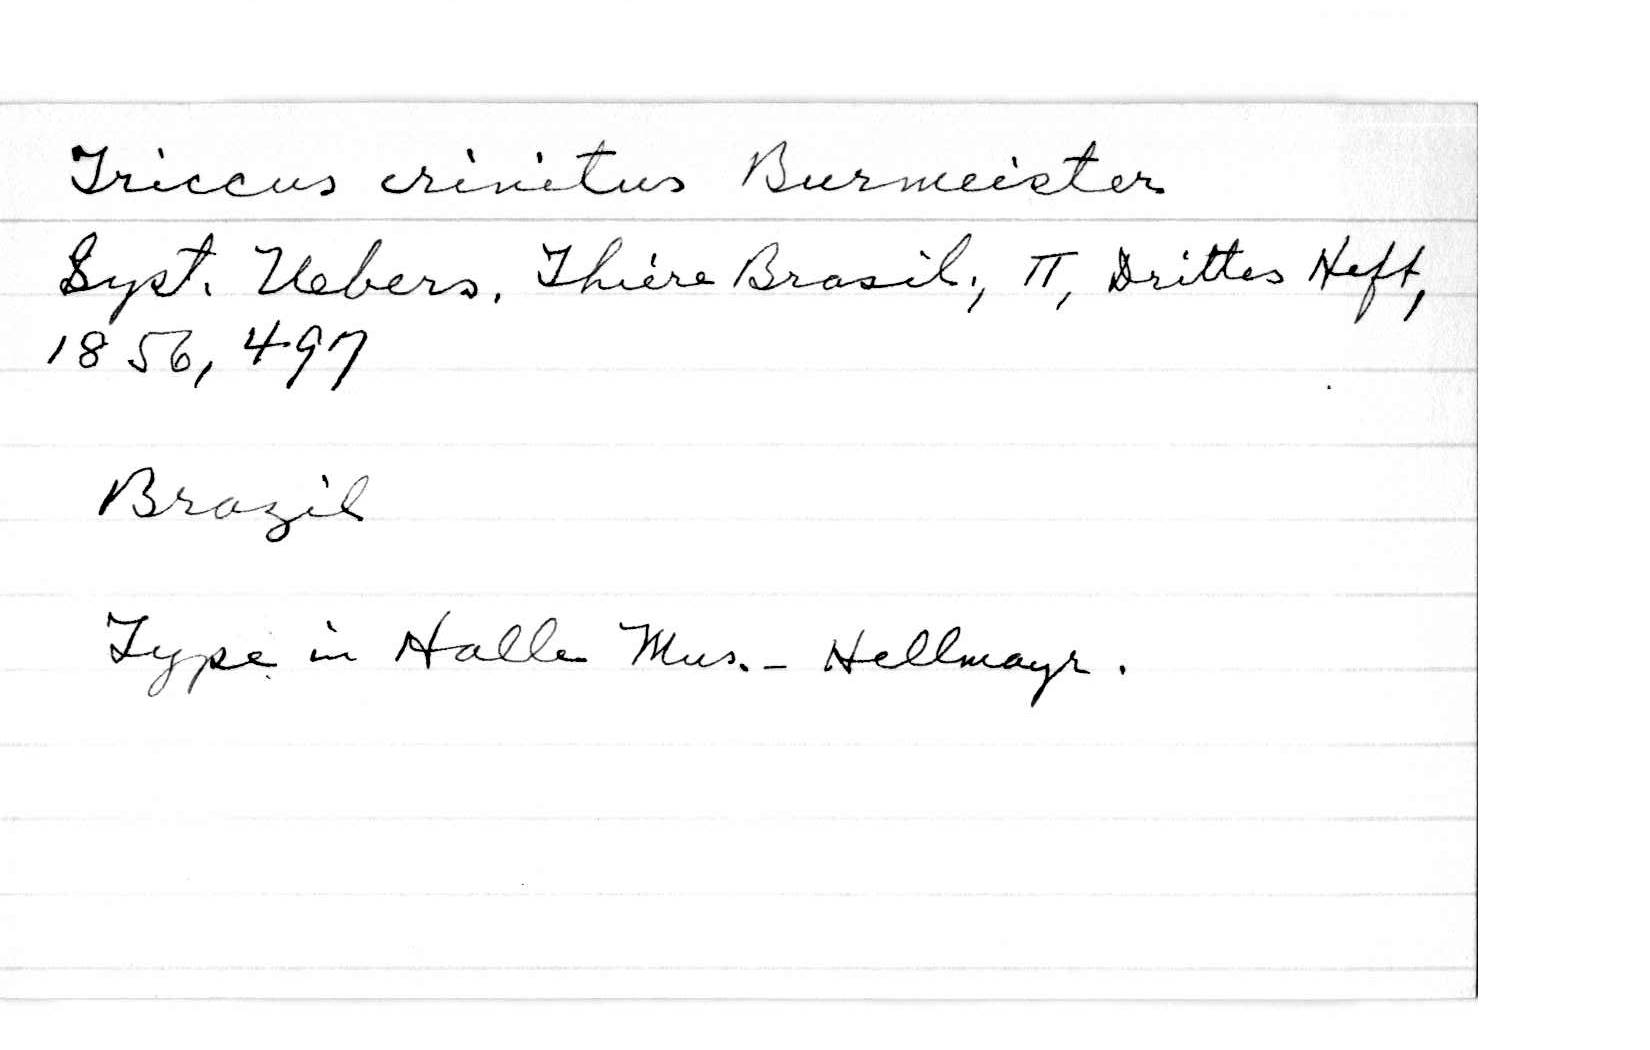 Triccus crinitus Burmeister
Syst. Uebers. Thiere Brasil., II, Drittes Heft,
1856, 497
Brazil
Type in Halle Mus. - Hellmayr.